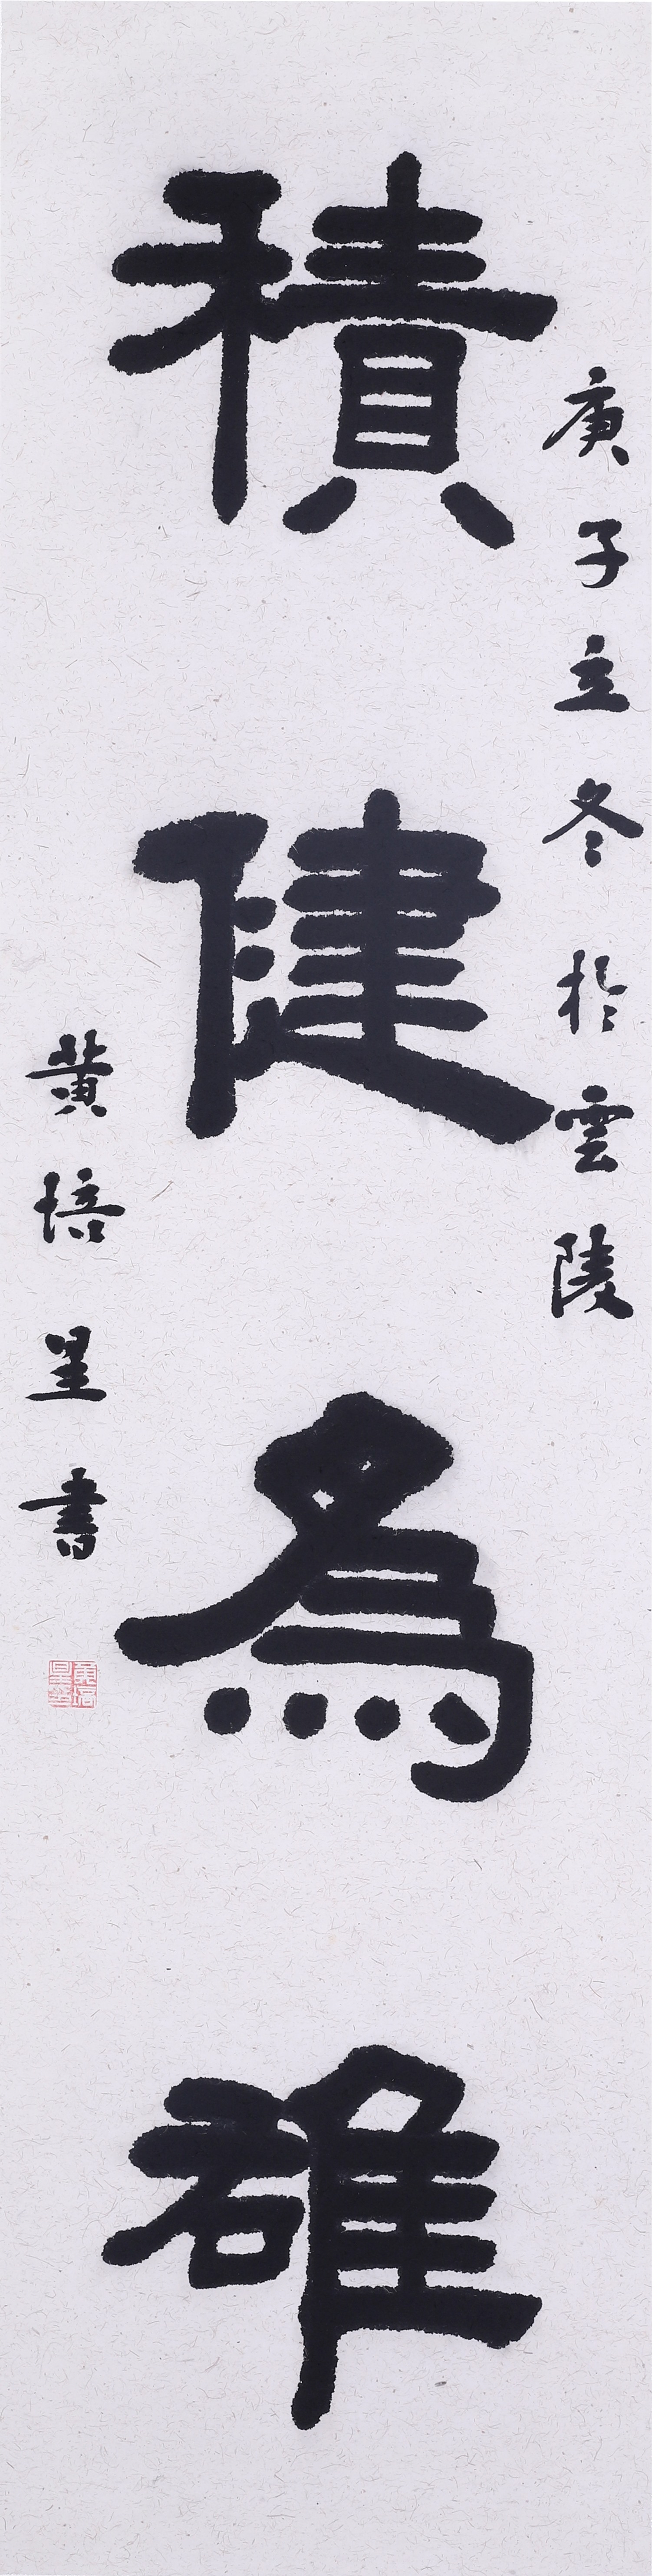 庚子立冬於雲陵
積健為雄
黃培星書